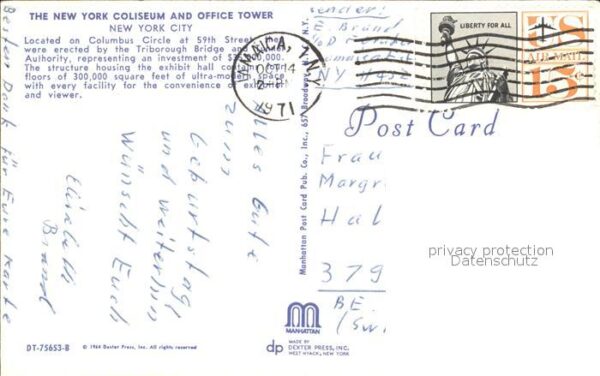 THE NEW YORK COLISEUM AND OFFICE TOWER
NEW YORK CITY
Located on Columbus Circle at 59th Street, the
were erected by the Triborough Bridge and
Authority, representing an investment of $35,000,000.
The structure housing the exhibit hall contains
floors of 300,000 square feet of ultra-modern space
with every facility for the convenience of exhibitor
and viewer.
Sender:
E. Brand
Jamaica
NY
JAMAICA, N.Y.
OCT 14
1971
LIBERTY FOR ALL
US
AIR MAIL
13c
Post Card
Alles Gute
zum
Geburtstag
und weiterhin
Wünscht Euch
Elisabeth
Brand
Besten Dank für Eure Karte
Frau
Margr
Hal
379
BE
(SW
privacy protection
Datenschutz
Manhattan Post Card Pub. Co., Inc., 657 Broadway, N.Y.
MANHATTAN
dp MADE BY
DEXTER PRESS, INC.
WEST NYACK, NEW YORK
DT-75653-B
© 1964 Dexter Press, Inc. All rights reserved